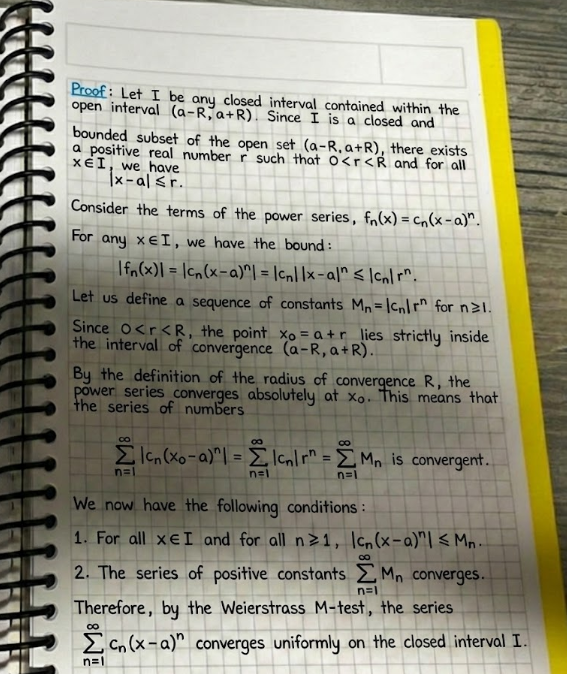 Proof: Let I be any closed interval contained within the
open interval (a-R, a+R). Since I is a closed and
bounded subset of the open set (a-R, a+R), there exists
a positive real number r such that 0<r<R and for all
x∈I, we have
|x-a| ≤ r.
Consider the terms of the power series, fₙ(x) = cₙ(x-a)ⁿ.
For any x∈I, we have the bound:
|fₙ(x)| = |cₙ(x-a)ⁿ| = |cₙ||x-a|ⁿ ≤ |cₙ|rⁿ.
Let us define a sequence of constants Mₙ = |cₙ|rⁿ for n≥1.
Since 0<r<R, the point x₀ = a+r lies strictly inside
the interval of convergence (a-R, a+R).
By the definition of the radius of convergence R, the
power series converges absolutely at x₀. This means that
the series of numbers
∑_{n=1}^{∞} |cₙ(x₀-a)ⁿ| = ∑_{n=1}^{∞} |cₙ|rⁿ = ∑_{n=1}^{∞} Mₙ is convergent.
We now have the following conditions:
1. For all x∈I and for all n≥1, |cₙ(x-a)ⁿ| ≤ Mₙ.
2. The series of positive constants ∑_{n=1}^{∞} Mₙ converges.
Therefore, by the Weierstrass M-test, the series
∑_{n=1}^{∞} cₙ(x-a)ⁿ converges uniformly on the closed interval I.